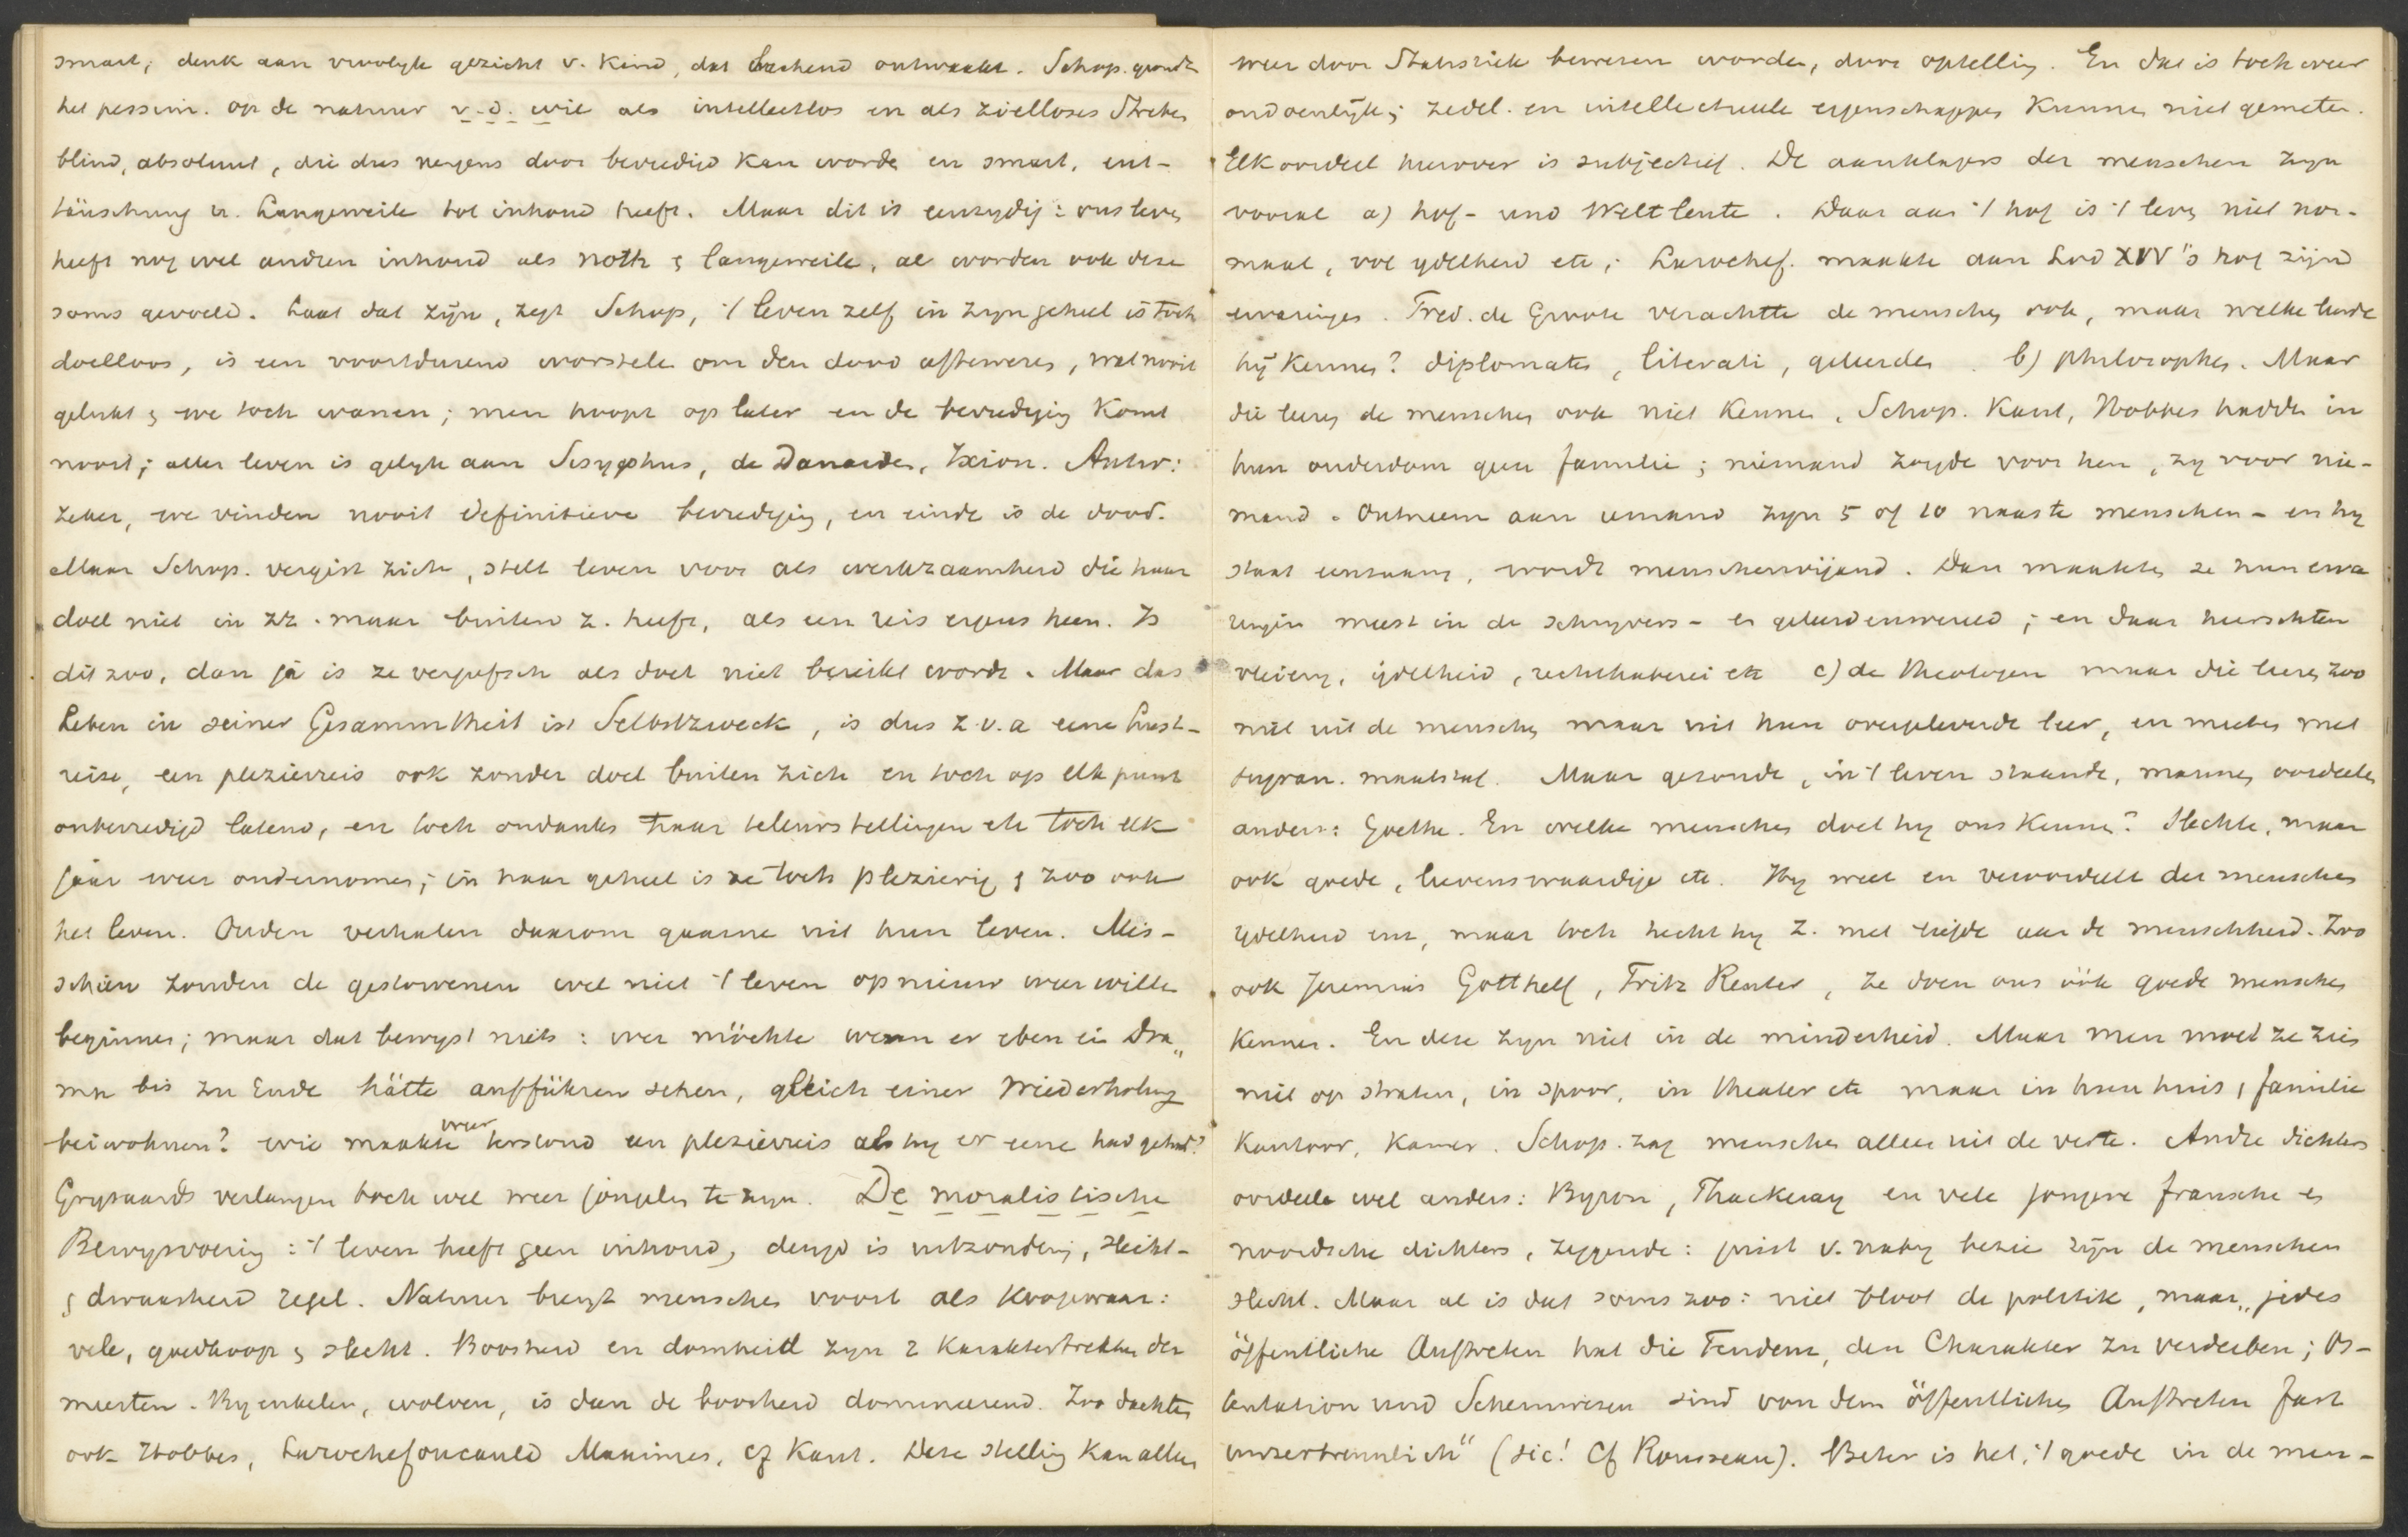 smart; denk aan vroolyk gezicht v. kind, dat lachend ontwaakt. Schop. grondt
het pessim. op de natuur v. d. wil als intellectlos en als zielloses Streben
blind, absoluut, die dus nergens door bevredigd kan worden en smart, ent-
täuschung u. Langeweile tot inhoud heeft. Maar dit is eenzydig: ons leven
heeft nog wel andren inhoud als noth & langeweile, al worden ook deze
soms gevoeld. Laat dat zijn, zegt Schop, 't leven zelf in zyn geheel is toch
doelloos, is een voortdurend worstelen om den dood afteweren, wat nooit
gelukt & we toch wanen; men hoopt op later en de bevrediging komt
nooit; aller leven is gelyk aan Sisyphus, de Danaiden, Ixion. Antw:
zeker, we vinden nooit definitieve bevrediging, en einde is de dood.
Maar Schop. vergist zich, stelt leven voor als werkzaamheid die haar
doel niet in zz. maar buiten z. heeft, als een reis ergens heen. Is
dit zoo, dan ja is ze vergeefsch als doel niet bereikt wordt. Maar das
Leben in seiner Gesammtheit ist Selbstzweck, is dus z.v.a eene Lust-
reise, een plezierreis ook zonder doel buiten zich en toch op elk punt
onbevredigd latend, en toch ondanks haar teleurstellingen etc toch elk
jaar weer ondernomen; in haar geheel is ze toch plezierig & zoo ook
het leven. Ouden verhalen daarom gaarne uit hun leven. Mis-
schien zouden de gestorvenen wel niet 't leven opnieuw weer willen
beginnen; maar dat bewyst niets: wer möchte wenn er eben ein Dra„
ma bis zu Ende hätte aufführen sehen, gleich einer Wiederholung
beiwohnen? wie maakte weer terstond een plezierreis als hy er eene had gehad?
Grysaards verlangen toch wel weer jongelin te zyn. De moralistische
Bewysvoering: 't leven heeft geen inhoud, deugd is uitzondering, slecht-
& dwaasheid regel. Natuur brengt menschen voort als koopwaar:
vele, goedkoop & slecht. Boosheid en domheid zyn 2 karaktertrekken der
meesten. By enkelen, wolven, is dan de boosheid domineerend. Zoo dachten
ook Hobbes, Larochefoucauld Maximes, cf Kant. Deze stelling kan alleen
weer door Statistiek bewezen worden, door optelling. En dat is toch weer
ondoenlijk; zedel. en intellectueele eigenschappen kunnen niet gemeten.
Elk oordeel hierover is subjectief. De aanklagers der menschen zyn
vooral a) hof- und Weltleute. Daar aan 't hof is 't leven niet nor-
maal, vol ydelheid etc; Larochef. maakte aan Lod XIV's hof zijne
ervaringen. Fred. de Groote verachtte de menschen ook, maar welke leerde
hij kennen? diplomaten, literati, geleerden. b) philosophen. Maar
die leeren de menschen ook niet kennen, Schop. Kant, Hobbes hadden in
hun ouderdom geen familie; niemand zorgde voor hen, zy voor nie-
mand. Ontneem aan iemand zyn 5 of 10 naaste menschen - en hy
staat eenzaam, wordt menschenvijand. Dan maakten ze hun erva
ringen meest in de schryvers- en geleerdenwereld; en daar heerschten
vleiery, ijdelheid, rechthaberei etc c) de theologen maar die leeren zoo
niet uit de menschen maar uit hun overgeleverde leer, en meten met
 maatstaf. Maar gezonde, in 't leven staande, mannen oordeelen
anders: Goethe. En welke menschen doet hy ons kennen? Slechte, maar
ook goede, lievenswaardige etc. Hy weet en veroordeelt der menschen
ydelheid enz, maar toch hecht hy z. met liefde aan de menschheid. Zoo
ook Jeremias Gotthelf, Fritz Reuter, ze doen ons óók goede menschen
kennen. En deze zyn niet in de minderheid. Maar men moet ze zien
niet op straten, in spoor, in theater etc maar in hun huis, familie
Kantoor, Kamer. Schop. zag menschen alleen uit de verte. Andre dichters
oordeelen wel anders: Byron, Thackeray en vele jongere fransche en
noordsche dichters, zeggende: juist v. naby bezien zijn de menschen
slecht. Maar al is dat soms zoo: niet bloot de politik, maar „jedes
öffentliche Auftreten hat die Tendenz, den Charakter zu verderben; Os-
tentation und Scheinwesen sind von dem öffentlichen Auftreten fast
unzertrennlich" (sic! Cf Rousseau). Beter is het, 't goede in de men-